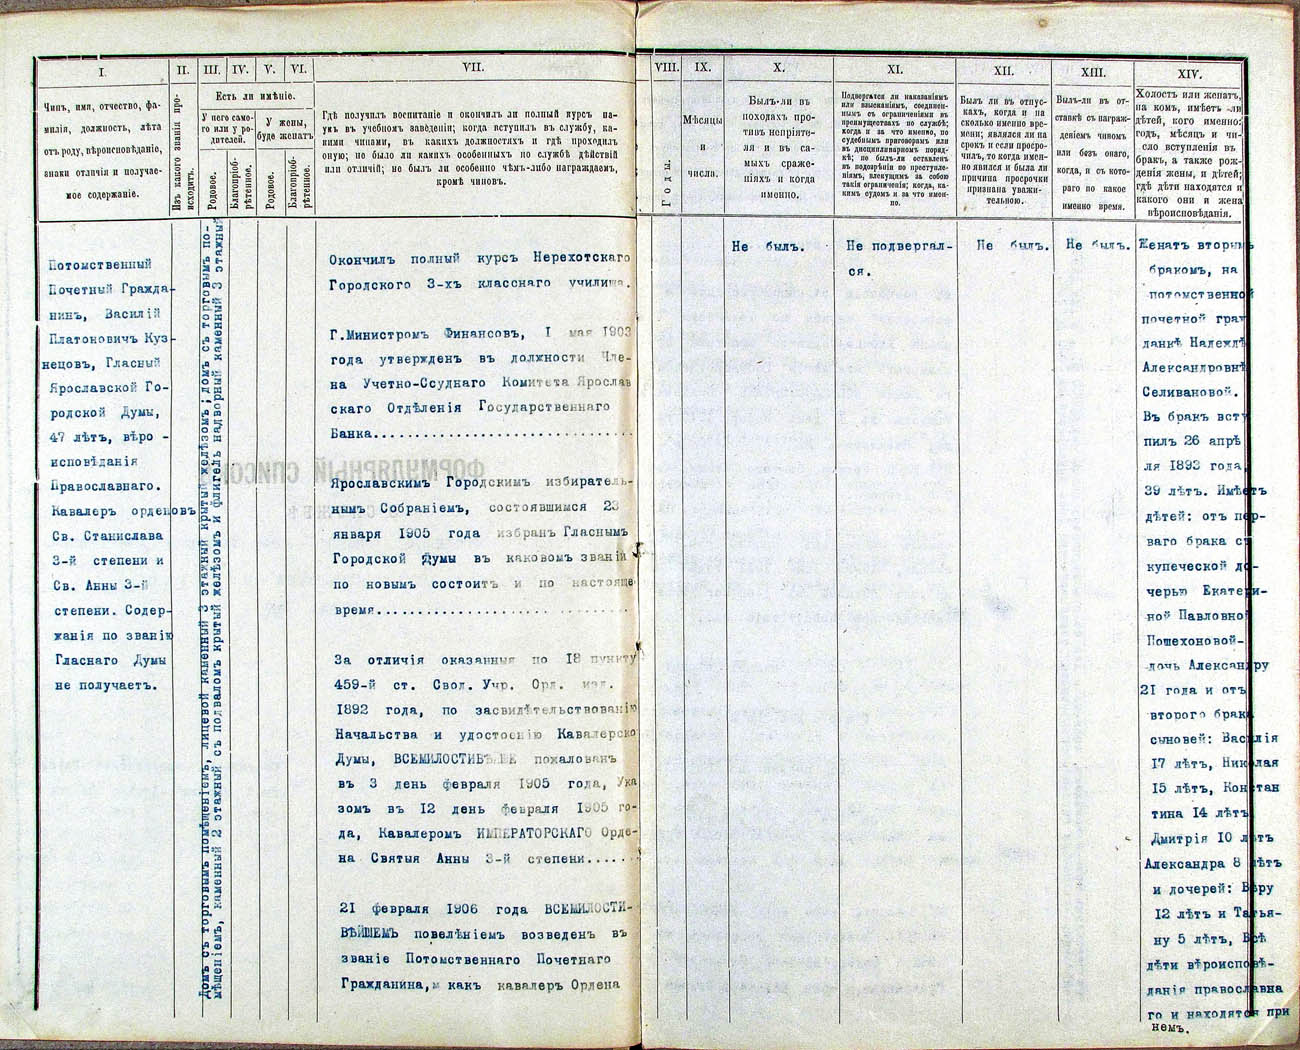 I.
Чинъ, имя, отчество, фа-
милія, должность, лѣта
отъ роду, вѣроисповѣданіе,
знаки отличія и получае-
мое содержаніе.
II.
Изъ какого званія про-
исходитъ.
III. IV. V. VI.
Есть ли имѣніе.
У него само-
го или у ро-
дителей.
У жены,
буде женатъ
Родовое.
Благопріоб-
рѣтенное.
Родовое.
Благопріоб-
рѣтенное.
VII.
Гдѣ получилъ воспитаніе и окончилъ ли полный курсъ на-
укъ въ учебномъ заведеніи; когда вступилъ въ службу, ка-
кими чинами, въ какихъ должностяхъ и гдѣ проходилъ
оную; не было ли какихъ особенныхъ по службѣ дѣйствій
или отличій; не былъ ли особенно чѣмъ-либо награждаемъ,
кромѣ чиновъ.
VIII.
Годы.
IX.
Мѣсяцы
и
числа.
X.
Былъ-ли въ
походахъ про-
тивъ непріяте-
ля и въ са-
мыхъ сраже-
ніяхъ и когда
именно.
XI.
Подвергался ли наказаніямъ
или взысканіямъ, соединен-
нымъ съ ограниченіями въ
преимуществахъ по службѣ;
когда и за что именно, по
судебнымъ приговорамъ или
въ дисциплинарномъ поряд-
кѣ; не былъ-ли оставленъ
въ подозрѣніи по преступле-
ніямъ, влекущимъ за собою
такія ограниченія; когда, ка-
кимъ судомъ и за что имен-
но.
XII.
Былъ ли въ отпус-
кахъ, когда и на
сколько именно вре-
мени; являлся ли на
срокъ и если просро-
чилъ, то когда имен-
но явился и была ли
причина просрочки
признана уважи-
тельною.
XIII.
Былъ-ли въ от-
ставкѣ съ награж-
деніемъ чиномъ
или безъ онаго,
когда, и съ кото-
раго по какое
именно время.
XIV.
Холостъ или женатъ,
на комъ, имѣетъ -ли
дѣтей, кого именно;
годъ, мѣсяцъ и чи-
сло вступленія въ
бракъ, а также рож-
денія жены, и дѣтей;
гдѣ дѣти находятся и
какого они и жена
вѣроисповѣданія.
Потомственный
Почетный Гражда-
нинъ, Василій
Платоновичъ Куз-
нецовъ, Гласный
Ярославской Го-
родской Думы,
47 лѣтъ, вѣро -
исповѣданія
Православнаго.
Кавалеръ орденовъ
Св. Станислава
3-й степени и
Св. Анны 3-й
степени. Содер-
жанія по званію
Гласнаго Думы
не получаетъ.
Домъ съ торговымъ помѣщеніемъ, лицевой каменный 3 этажный крытый желѣзомъ; домъ съ торговымъ по-
мѣщеніемъ, каменный 2 этажный съ подваломъ крытый желѣзомъ и флигель надворный каменный 3 этажный
Окончилъ полный курсъ Нерехотскаго
Городского 3-хъ класснаго училища.
Г.Министромъ Финансовъ, I мая 1903
года утвержденъ въ должности Чле-
на Учетно-Ссуднаго Комитета Ярослав
скаго Отдѣленія Государственнаго
Банка..............................
Ярославскимъ Городскимъ избиратель-
нымъ Собраніемъ, состоявшимся 23
января 1905 года избранъ Гласнымъ
Городской Думы въ каковомъ званіи
по новымъ состоитъ и по настояще
время..............................
За отличія оказанныя по 18 пункту
459-й ст. Свод. Учр. Орд. изд.
1892 года, по засвидѣтельствованію
Начальства и удостоенію Кавалерско
Думы, ВСЕМИЛОСТИВѢЙШЕ пожалованъ
въ 3 день февраля 1905 года, Ука
зомъ въ 12 день февраля 1905 го-
да, Кавалеромъ ИМПЕРАТОРСКАГО Орде-
на Святыя Анны 3-й степени......
21 февраля 1906 года ВСЕМИЛОСТИ-
ВѢЙШЕМЪ повелѣніемъ возведенъ въ
званіе Потомственнаго Почетнаго
Гражданина, и какъ кавалеръ Ордена
Не былъ.
Не подвергал-
ся.
Не былъ.
Не былъ.
Женатъ вторымъ
бракомъ, на
потомственной
почетной граж
данкѣ Надеждѣ
Александровнѣ
Селивановой.
Въ бракъ всту
пилъ 26 апрѣ
ля 1893 года,
39 лѣтъ. Имѣетъ
дѣтей: отъ пер-
ваго брака съ
купеческой до-
черью Екатери-
ной Павловной
Пошехоновой-
дочь Александру
21 года и отъ
второго брака
сыновей: Василія
17 лѣтъ, Николая
15 лѣтъ, Констан
тина 14 лѣтъ,
Дмитрія 10 лѣтъ
Александра 8 лѣтъ
и дочерей: Вѣру
12 лѣтъ и Татья-
ну 5 лѣтъ, Всѣ
дѣти вѣроисповѣ-
данія православна
го и находятся при
немъ.